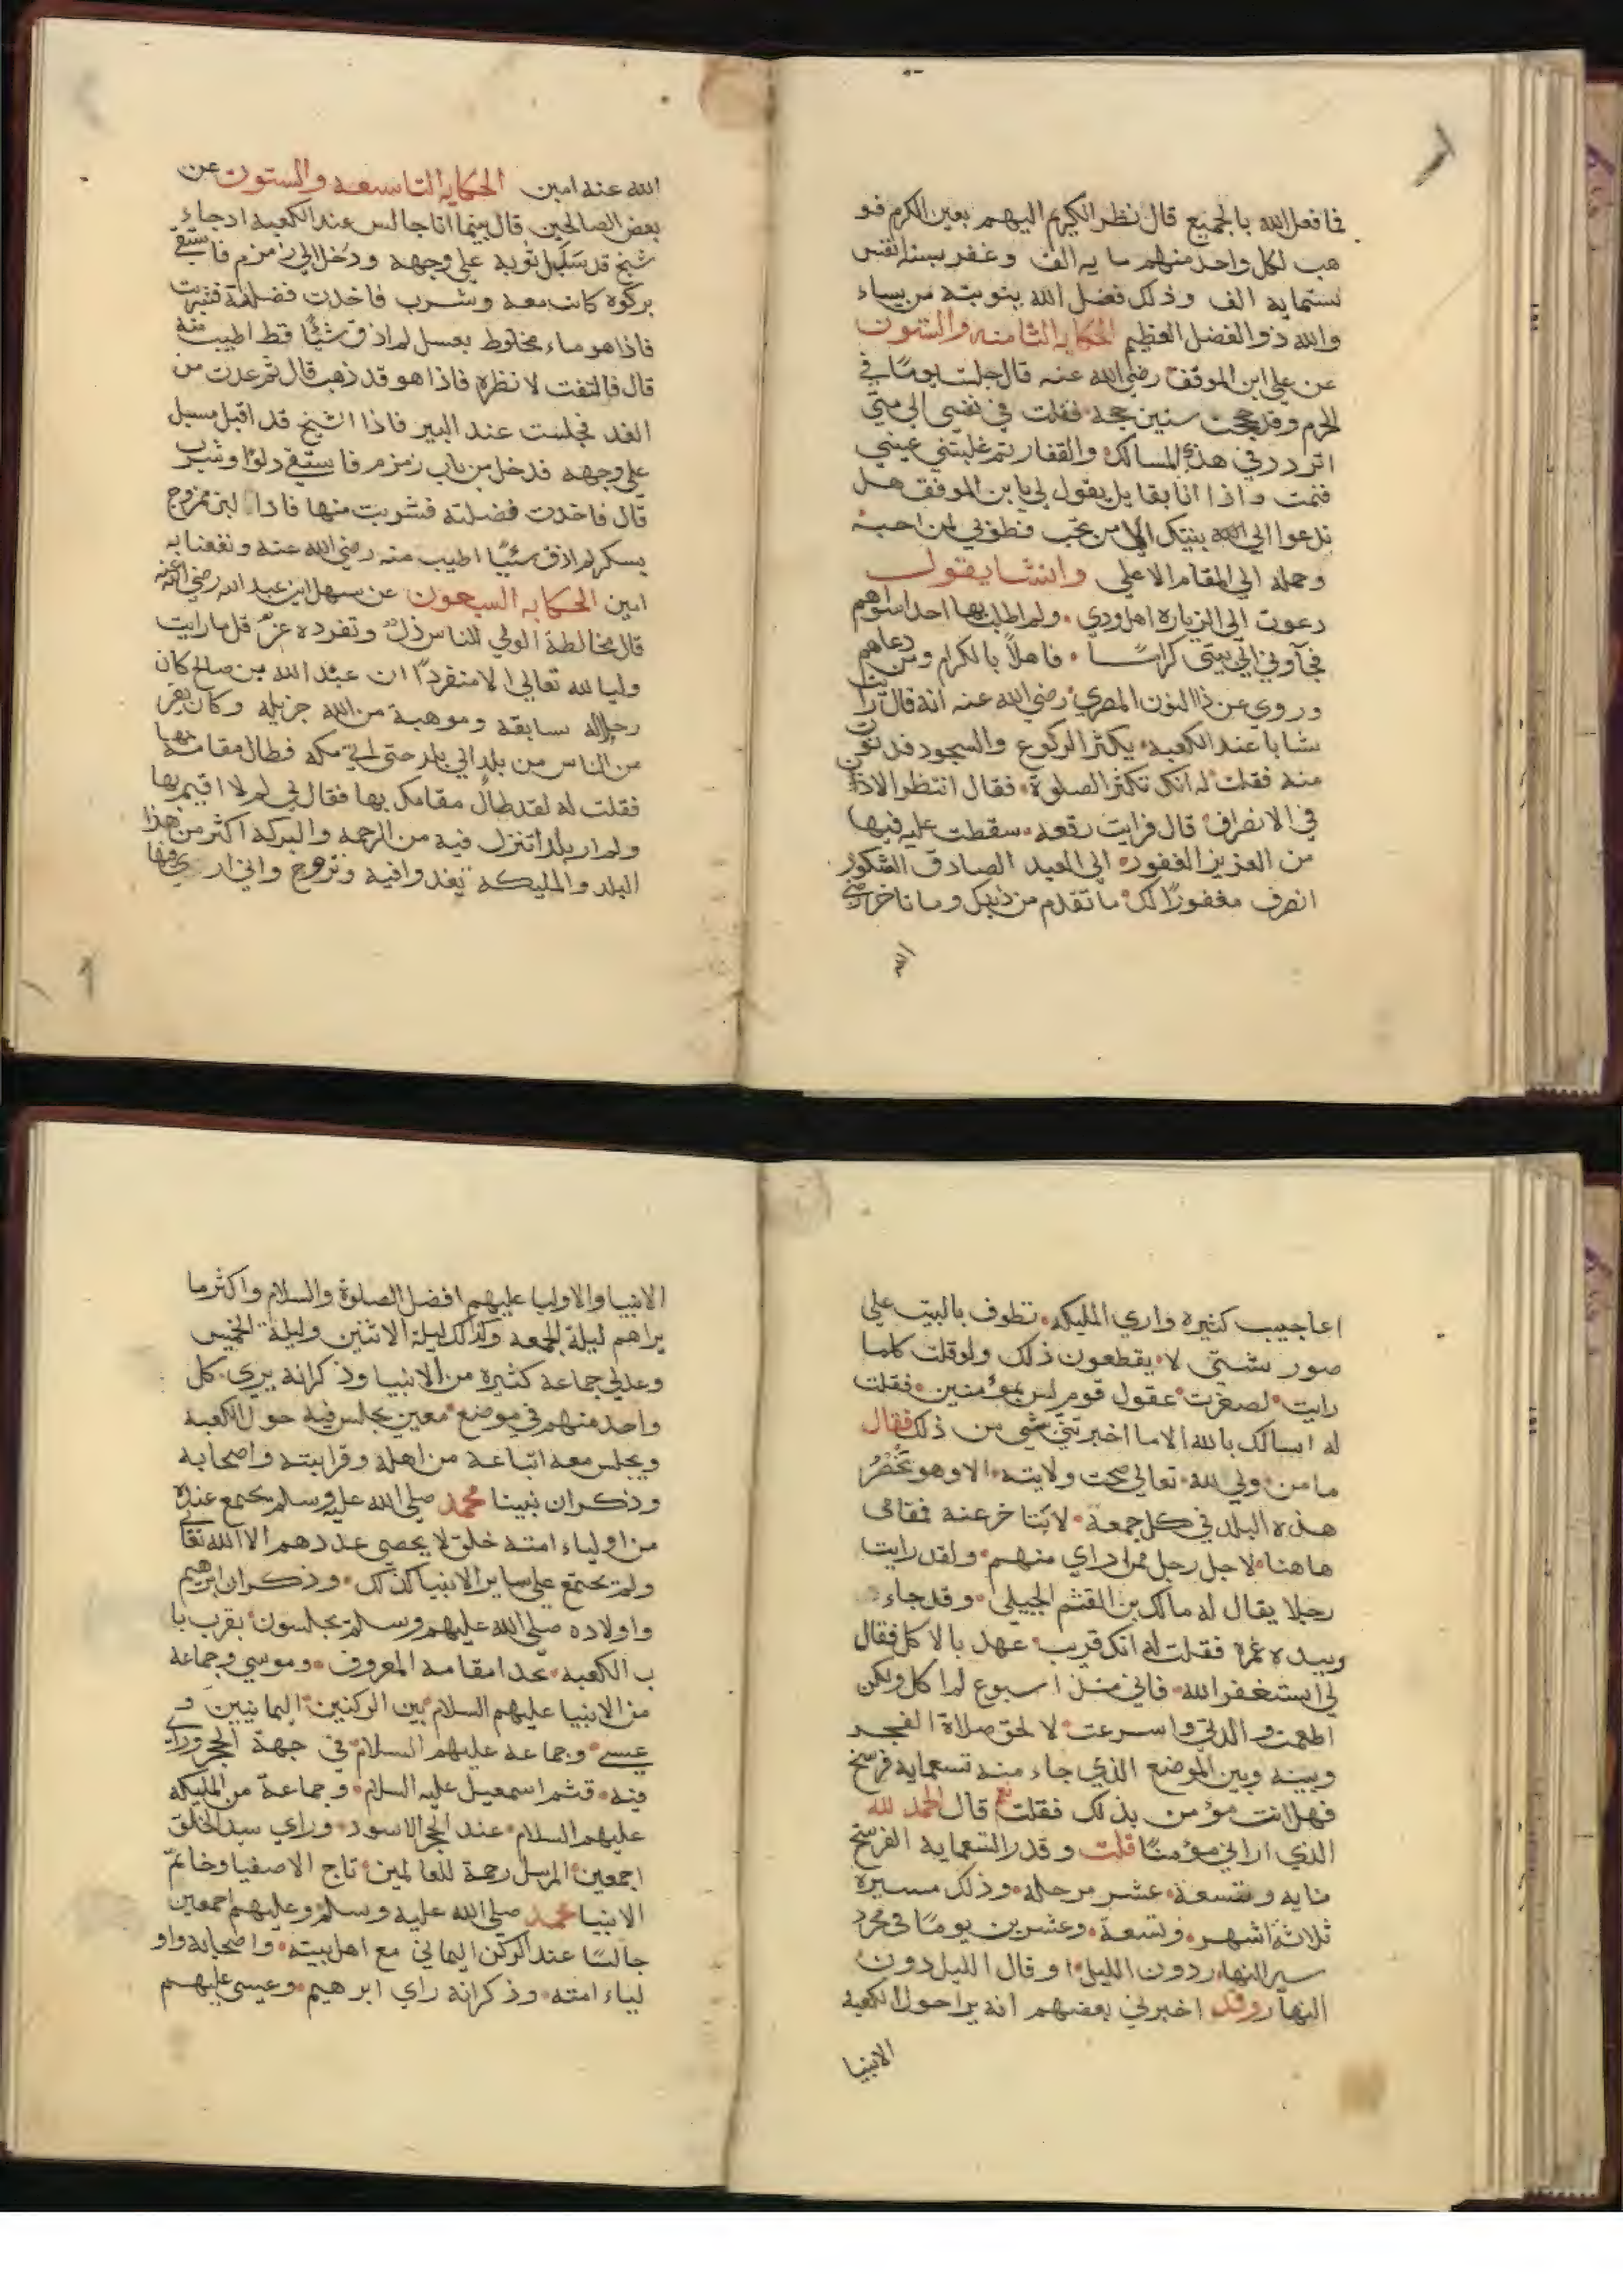 فما فعل الله بالجميع قال نظر الكريم اليهم بعين الكرم فو
هب لكل واحد منهم ماية الف وغفر بستة انفس
ستماية الف وذلك فضل الله يؤتيه من يساء
والله ذو الفضل العظيم الحكاية الثامنه والستون
عن علي ابن الموفق رضي الله عنه قال جلست يومًا في
الحرم وقد حججت ستين حجه فقلت في نفسي الي متي
اتردد في هذه المسالك والقفار ثم غلبتني عيني
فنمت واذا انا بقايل يقول لي يا بن الموفق هل
تدعوا الي بيتك الا من تحب فطوبي لمن احبه
وحمله الي المقام الاعلي وانشا يقول
دعوت الي الزيارة اهل ودي ولم اطلب بها احدا سواهم
فجآوني الي بيتي كرامًا فاهلاً بالكرام ومن دعاهم
وروي عن ذا النون المصري رضي الله عنه انه قال رايت
شابا عند الكعبه يكثر الركوع والسجود فدنوت
منه فقلت له انك تكثر الصلوة فقال انتظر الاذن
في الانصراف قال فرايت رقعه سقطت عليه فيها
من العزيز الغفور الي العبد الصادق الشكور
انصرف مغفورًا لك ما تقدم من ذنبك وما تاخر رضي
الله
الله عنه امين الحكايه التاسعه والستون عن
بعض الصالحين قال بينما انا جالس عند الكعبة اد جاء
شيخ قد سبل ثوبه علي وجهه ودخل الي زمزم فاستقي
بركوة كانت معه وشرب فاخدت فضلته فشربت
فاذا هو ماء مخلوط بعسل لم اذق شيًا قط اطيب منه
قال فالتفت لانظره فاذا هو قد ذهب قال ثم عدت من
الغد فجلست عند البير فاذا الشيخ قد اقبل مسبل
علي وجهه فدخل من باب زمزم فاستقي دلوًا وشرب
قال فاخدت فضلته فشربت منها فاذا لبن ممزوج
بسكر لم اذق شيًا اطيب منه رضي الله عنه ونفعنا به
امين الحكايه السبعون عن سهل ابن عبد الله رضي الله عنه
قال مخالطة الولي للناس ذل وتفرده عز قل ما رايت
وليا لله تعالي الا منفردًا ان عبد الله بن صالح كان
رجلا له سابقه وموهبة من الله جزيله وكان يفر
من الناس من بلد الي بلد حتي اتي مكه فطال مقامه بها
فقلت له لقد طال مقامك بها فقال لي لم لا اقيم بها
ولم ار بلدا تنزل فيه من الرحمه والبركه اكثر من هذا
البلد والمليكه تغدوا فيه وتروح واني اري فيها
اعاجيب كثيره واري المليكه تطوف بالبيت علي
صور شتي لا يقطعون ذلك ولو قلت كلما
رايت لصغرت عقول قوم ليس بمؤمنين فقلت
له اسالك بالله الا ما اخبرتني شي من ذلك فقال
ما من ولي لله تعالي صحت ولايته الا وهو تحضر
هذه البلد في كل جمعة لا يتاخر عنه فمقامي
هاهنا لاجل رجل ممن اراي منهم ولقد رايت
رجلا يقال له مالك بن القثم الجبيلي وقد جاء
وبيده غمرة فقلت له انك قريب عهد بالاكل فقال
لي استغفر الله فاني منذ اسبوع لم اكل ولكن
اطعمت والدتي واسرعت لالحق صلاة الفجر
وبينه وبين الموضع الذي جاء منه تسعماية فرسخ
فهل انت مؤمن بذلك فقلت نعم قال الحمد لله
الذي اراني مؤمنًا قلت وقدر التسعماية الفرسخ
مايه وتسعة عشر مرحله وذلك مسيرة
ثلاثة اشهر وتسعة وعشرين يومًا في مجرد
سير النهار دون الليل او قال الليل دون
النهار وقد اخبرني بعضهم انه يرا حول الكعبه
الانبيا
الانبيا والاوليا عليهم افضل الصلوة والسلام واكثر ما
يراهم ليلة الجمعه وكذلك ليلة الاثنين وليلة الخميس
وعدلي جماعة كثيرة من الانبيا وذكر انه يري كل
واحد منهم في موضع معين يجلس فيه حول الكعبه
ويجلس معه اتباعه من اهله وقرابته واصحابه
وذكر ان نبينا محمد صلي الله عليه وسلم يجتمع عنده
من اولياء امته خلق لا يحصي عددهم الا الله تعالي
ولم تجتمع علي ساير الانبيا كذلك وذكر ان ابرهيم
واولاده صلي الله عليهم وسلم يجلسون بقرب با
ب الكعبه بحدا مقامه المعروف وموسي وجماعة
من الانبيا عليهم السلام بين الركنين اليمانيين و
عيسي وجماعة عليهم السلام في جهة الحجر وراي
فيه قثم اسمعيل عليه السلام وجماعة من المليكه
عليهم السلام عند الحجر الاسود وراي سيد الخلق
اجمعين المرسل رحمة للعالمين تاج الاصفيا وخاتم
الانبيا محمد صلي الله عليه وسلم وعليهم اجمعين
جالسًا عند الركن اليماني مع اهل بيته واصحابه واو
لياء امته وذكر انه راي ابرهيم وعيسي عليهم